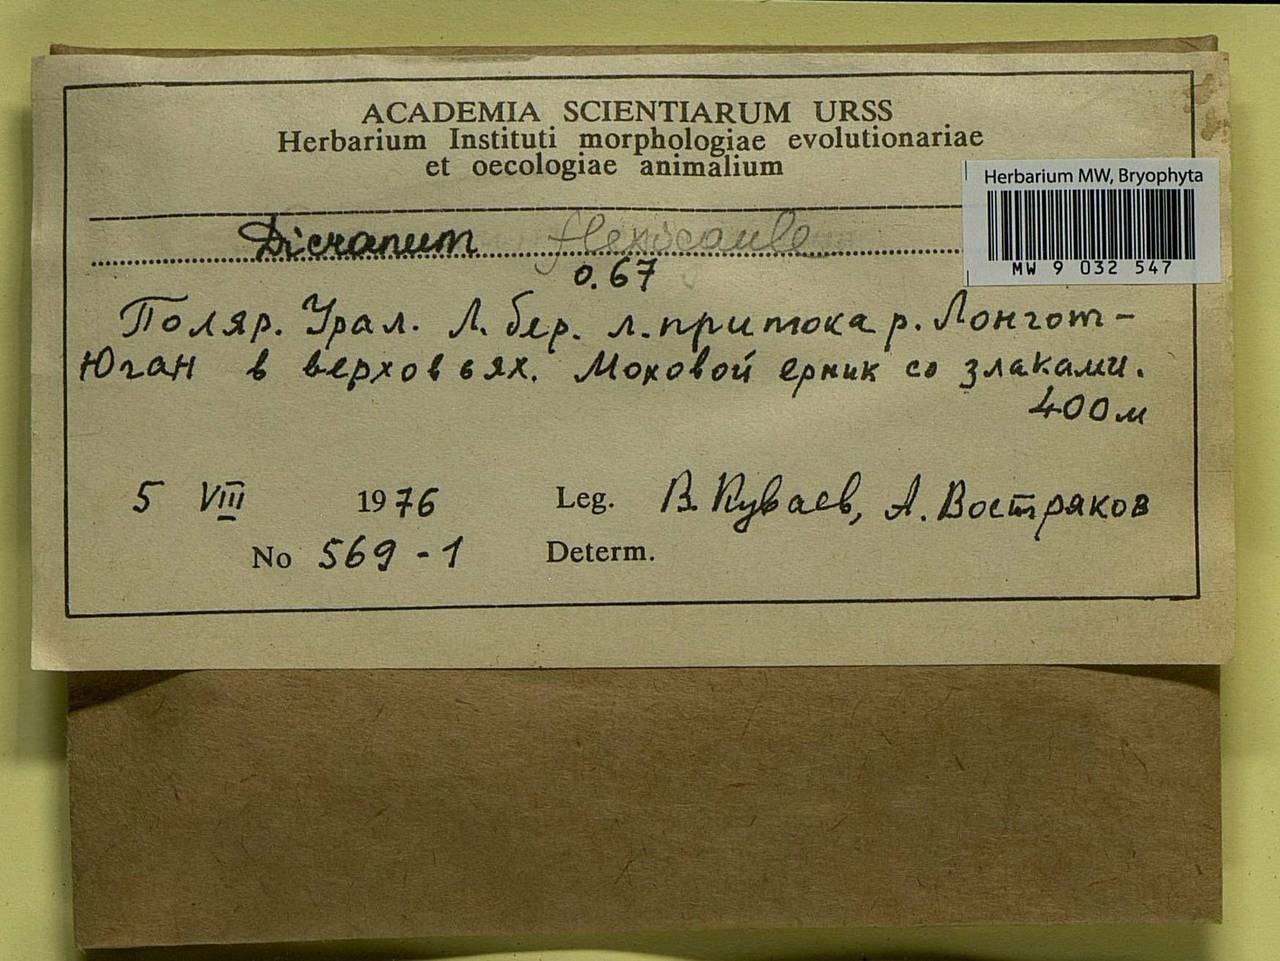 ACADEMIA SCIENTIARUM URSS
Herbarium Instituti morphologiae evolutionariae
et oecologiae animalium
Herbarium MW, Bryophyta
MW 9 032 547
Dicranum flexicaule
0.67
Поляр. Урал. Л. бер. л. притока р. Лонгот-
Юган в верховьях. Моховой ерник со злаками.
400 м
5 VIII 1976 Leg. В. Куваев, А. Востряков
No 569-1 Determ.